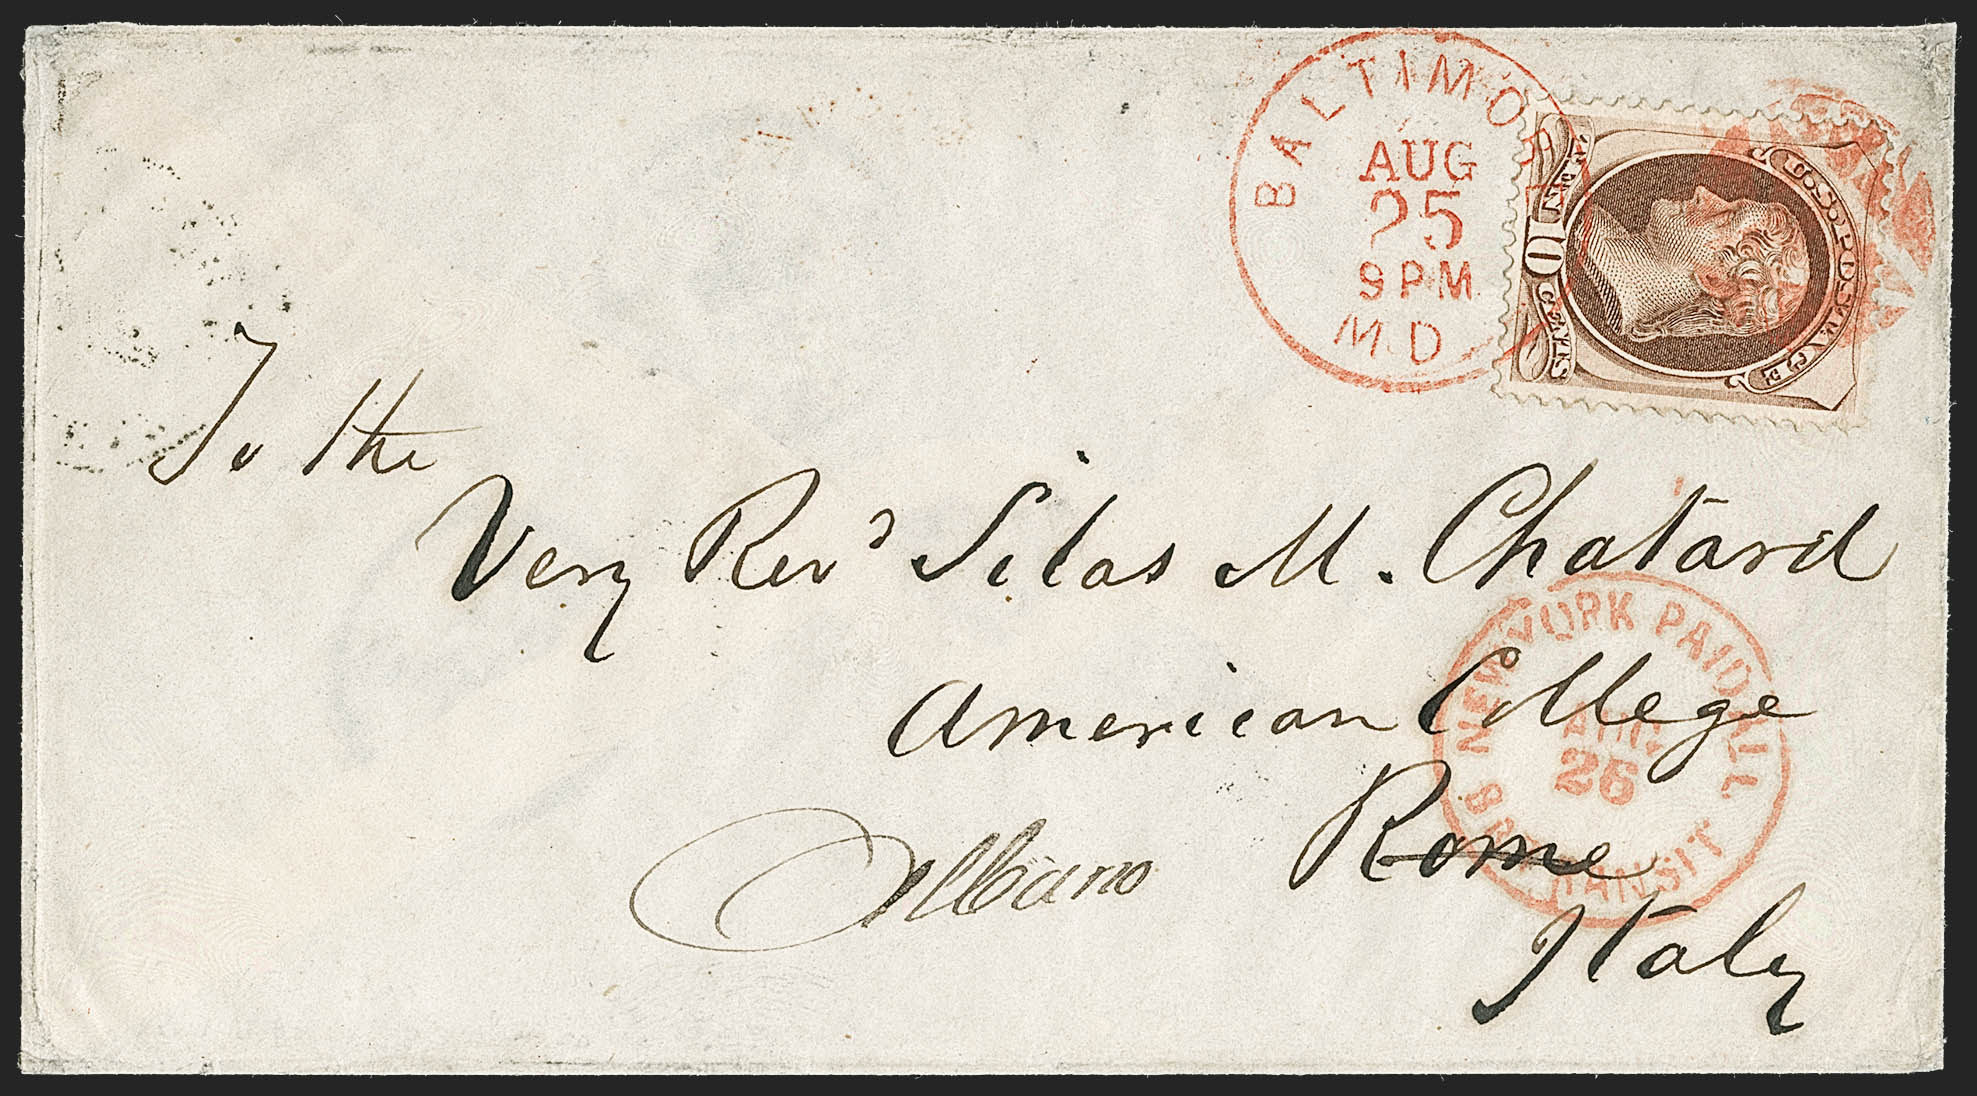 BALTIMORE
AUG
25
9 PM
MD
U.S. POSTAGE
TEN 10 CENTS
To the
Very Revd Silas M. Chatard
American College
Rome
Italy
Albano
NEW YORK PAID ALL
AUG
26
BR. TRANSIT